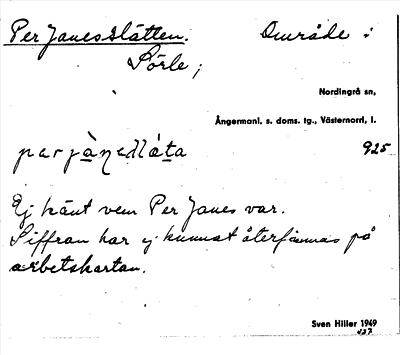 Per Janesslåtten. Område :
Sörle ;
Nordingrå sn,
Ångermanl. s. doms. tg., Västernorrl. l.
925
Ej känt vem Per Janes var.
Siffran har ej kunnat återfinnas på
arbetskartan.
Sven Hiller 1949